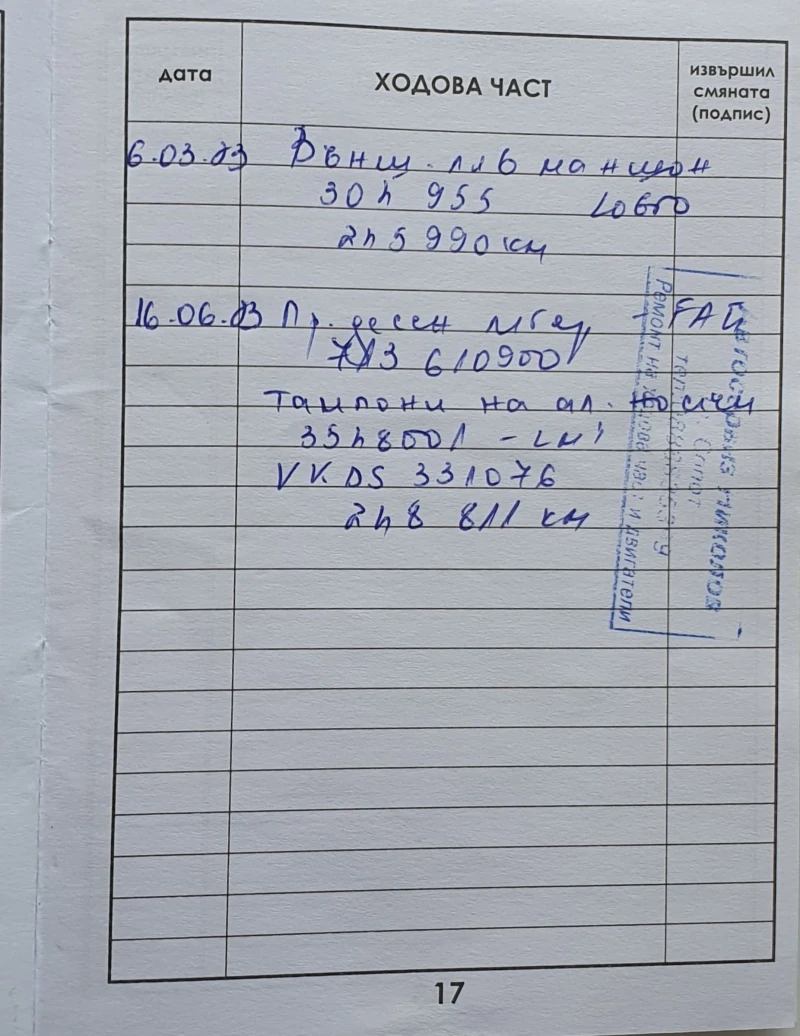 дата ХОДОВА ЧАСТ извършил смяната (подпис)
6.03.23 Външ. ляв маншон
304 955 LOBRO
245 990 км
16.06.23 Пр. десен лагер - FAG
713 610900
Тампони на ал. носачи
3548001 - LMI
VKDS 331076
248 811 км
Ремонт на ходова част и двигатели
17